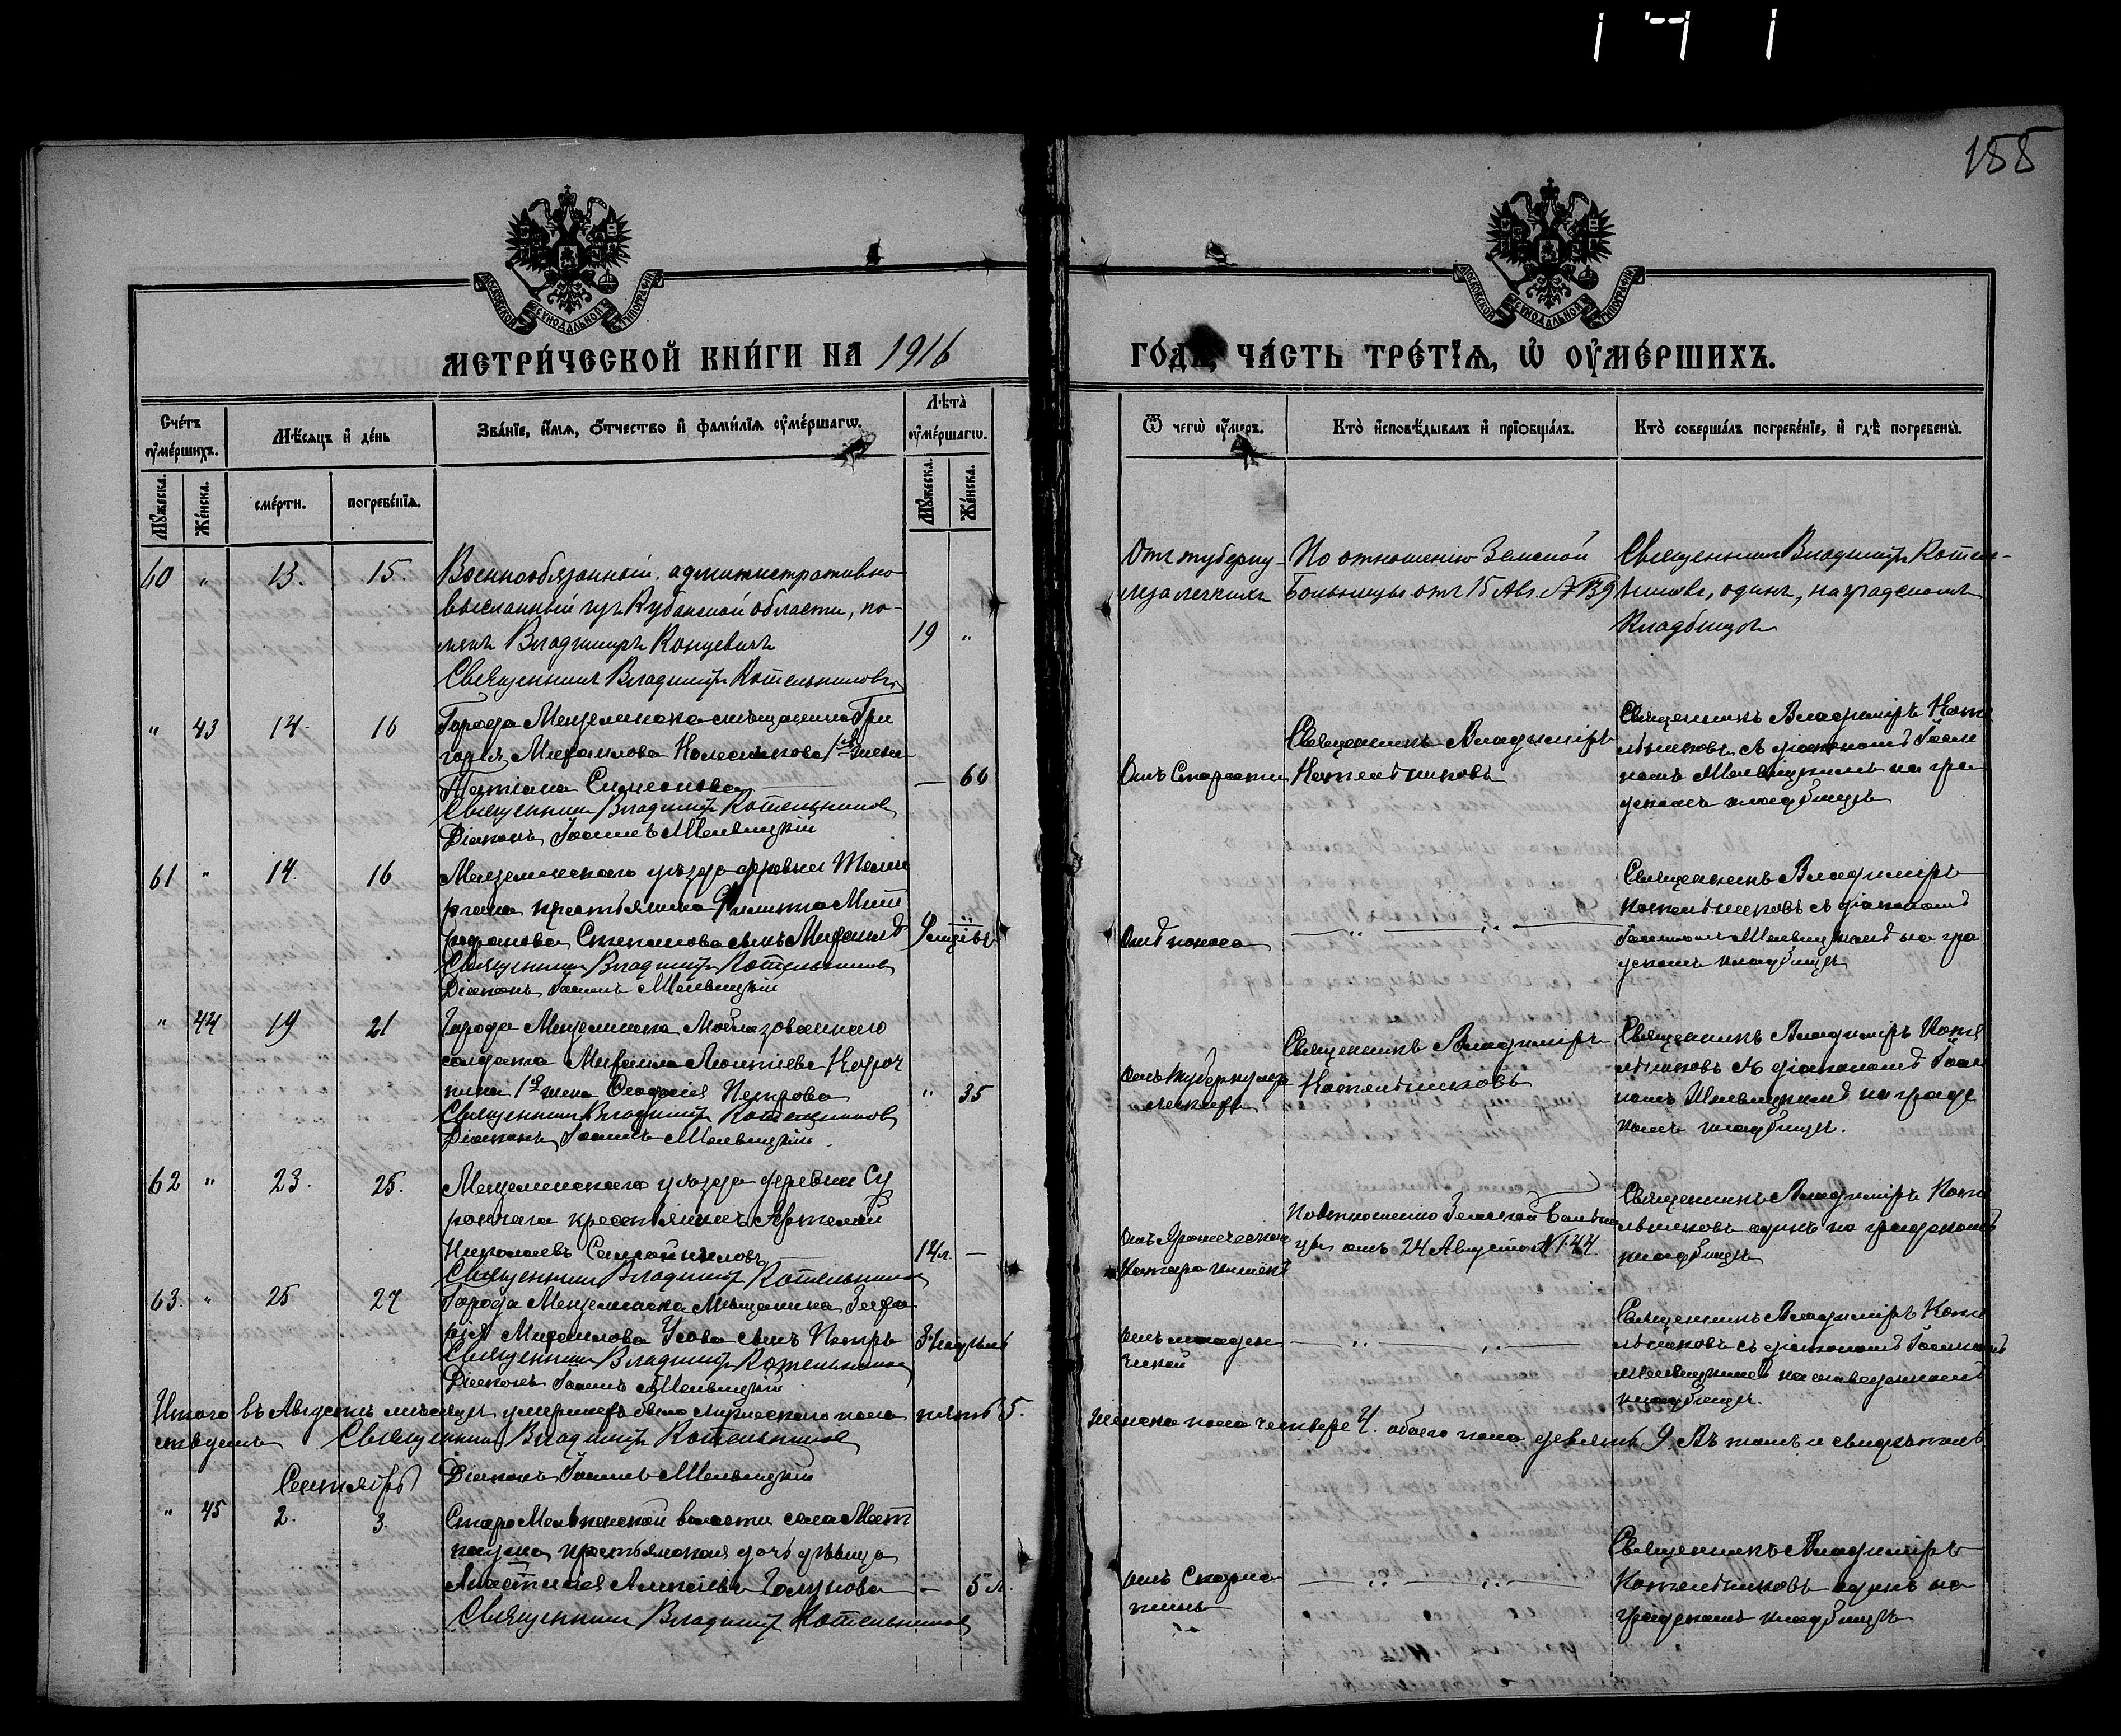 155
МОСКОВСКОЙ СУНОДАЛЬНОЙ ТИПОГРАФІИ
МОСКОВСКОЙ СУНОДАЛЬНОЙ ТИПОГРАФІИ
МЕТРИ́ЧЕСКОЙ КНИ́ГИ НА 1916
ГО́ДЪ, ЧА́СТЬ ТРЕ́ТІѦ, Ѡ҆ ОУ҆МЕ́РШИХЪ.
Сче́тъ оу҆ме́ршихъ.
Мѣ́сяцъ и҆ де́нь
Зва́нїе, и҆́мя, ѻ҆́тчество и҆ фами́лїя оу҆ме́ршагѡ.
Лѣ́та оу҆ме́ршагѡ.
Мꙋ́жеска.
Же́нска.
сме́рти.
погребе́нїя.
Мꙋ́жеска.
Же́нска.
Ѿ чегѡ̀ оу҆́меръ.
Кто̀ и҆сповѣ́дывалъ и҆ прїѻбща́лъ.
Кто̀ соверша́лъ погребе́нїе, и҆ гдѣ̀ погребены̀.
60 " 13. 15. Военнообязанный, административно
высланный изъ Кубанской области, по-
лякъ Владиміръ Концевичъ 19 "
Священникъ Владиміръ Котельниковъ
Отъ туберку-
леза легкихъ
По отношенію Земской
Больницы отъ 15 Авг. №
Священникъ Владиміръ Котель-
никовъ, одинъ, на градскомъ
Кладбищѣ
" 43 14. 16 Города Мензелинска мѣщанина Гри
горія Михаилова Колесникова 1ая жена
Татіана Симеонова — 66
Священникъ Владиміръ Котельниковъ
Діаконъ Іоаннъ
Отъ Старости
Священникъ Владиміръ
Котельниковъ
Священникъ Владиміръ Коте
льниковъ съ діакономъ Іоан
номъ на гра
дскомъ кладбищѣ
61 " 14. 16 Мензелинскаго уѣзда деревни
крестьянина Филиппа Мит
рофанова Степанова сынъ Михаилъ
Священникъ Владиміръ Котельниковъ
Діаконъ Іоаннъ
Отъ поноса
— " — " —
Священникъ Владиміръ
Котельниковъ съ діакономъ
Іоанномъ на гра
дскомъ кладбищѣ
" 44 19 21 Города Мензелинска Мобилизованнаго
солдата Михаила Леонтіева
1я жена Ѳеодосія Петрова " 35
Священникъ Владиміръ Котельниковъ
Діаконъ Іоаннъ
отъ туберкулеза
легкихъ
Священникъ Владиміръ
Котельниковъ
Священникъ Владиміръ Коте
льниковъ съ діакономъ Іоан
номъ на градс
комъ кладбищѣ.
62 " 23. 25. Мензелинскаго уѣзда деревни Су
крестьянинъ Артемій
Николаевъ 14 л. —
Священникъ Владиміръ Котельниковъ
Отъ Хроническаго
Катара кишекъ
По отношенію Земской Больни
цы отъ 24 Августа № 144
Священникъ Владиміръ Коте
льниковъ одинъ на градскомъ
кладбищѣ
63. " 25 27 Города Мензелинска Мѣщанина Заха
рія Михаилова Усова сынъ Петръ
Священникъ Владиміръ Котельниковъ
Діаконъ Іоаннъ
отъ младен
ческой
— " — " —
Священникъ Владиміръ Коте
льниковъ съ діакономъ Іоанномъ
на
кладбищѣ.
Итого въ Августѣ мѣсяцѣ умершихъ было мужескаго пола пять 5. женска пола четыре 4. обоего пола девять 9. Въ томъ и свидѣтель
ствуемъ Священникъ Владиміръ Котельниковъ
Діаконъ Іоаннъ
Сентябрь
" 45 2. 3. Старо Мелькенской волости села
крестьянская дочь дѣвица
Анастасія Алексіева — 5 л.
Священникъ Владиміръ Котельниковъ
отъ Скарла
тины
— " — " —
Священникъ Владиміръ
Котельниковъ одинъ на
градскомъ кладбищѣ